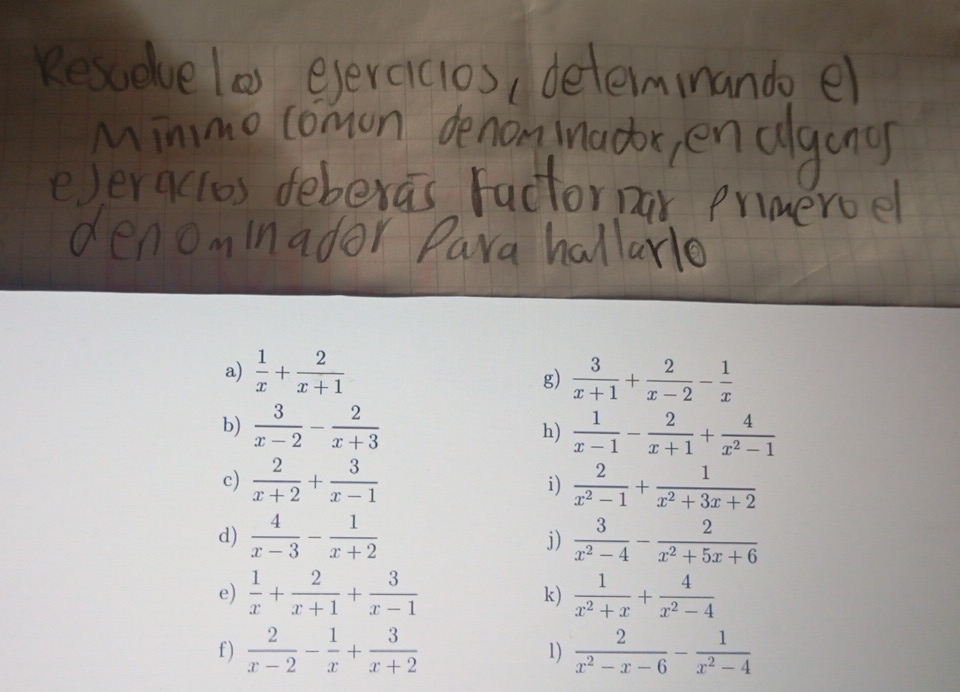 Resuelve los ejercicios, determinando el
Mínimo común denominador, en algunos
ejercicios deberás factorizar primero el
denominador Para hallarlo
a) 1/x + 2/(x + 1)
b) 3/(x − 2) − 2/(x + 3)
c) 2/(x + 2) + 3/(x − 1)
d) 4/(x − 3) − 1/(x + 2)
e) 1/x + 2/(x + 1) + 3/(x − 1)
f) 2/(x − 2) − 1/x + 3/(x + 2)
g) 3/(x + 1) + 2/(x − 2) − 1/x
h) 1/(x − 1) − 2/(x + 1) + 4/(x² − 1)
i) 2/(x² − 1) + 1/(x² + 3x + 2)
j) 3/(x² − 4) − 2/(x² + 5x + 6)
k) 1/(x² + x) + 4/(x² − 4)
l) 2/(x² − x − 6) − 1/(x² − 4)